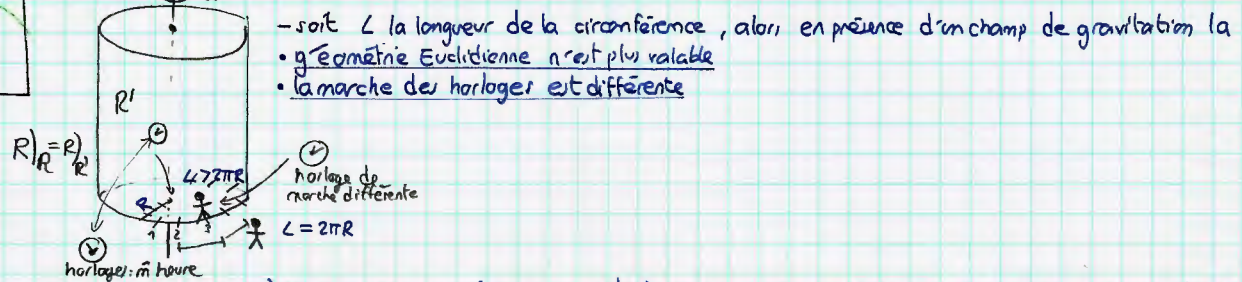 - soit L la longueur de la circonférence, alors en présence d'un champ de gravitation la
• géométrie Euclidienne n'est plus valable
• la marche des horloges est différente
R'
R)R = R)R'
L > 2πR
horloge de
marche différente
R
1 2 3
L = 2πR
horloges: m̄ heure